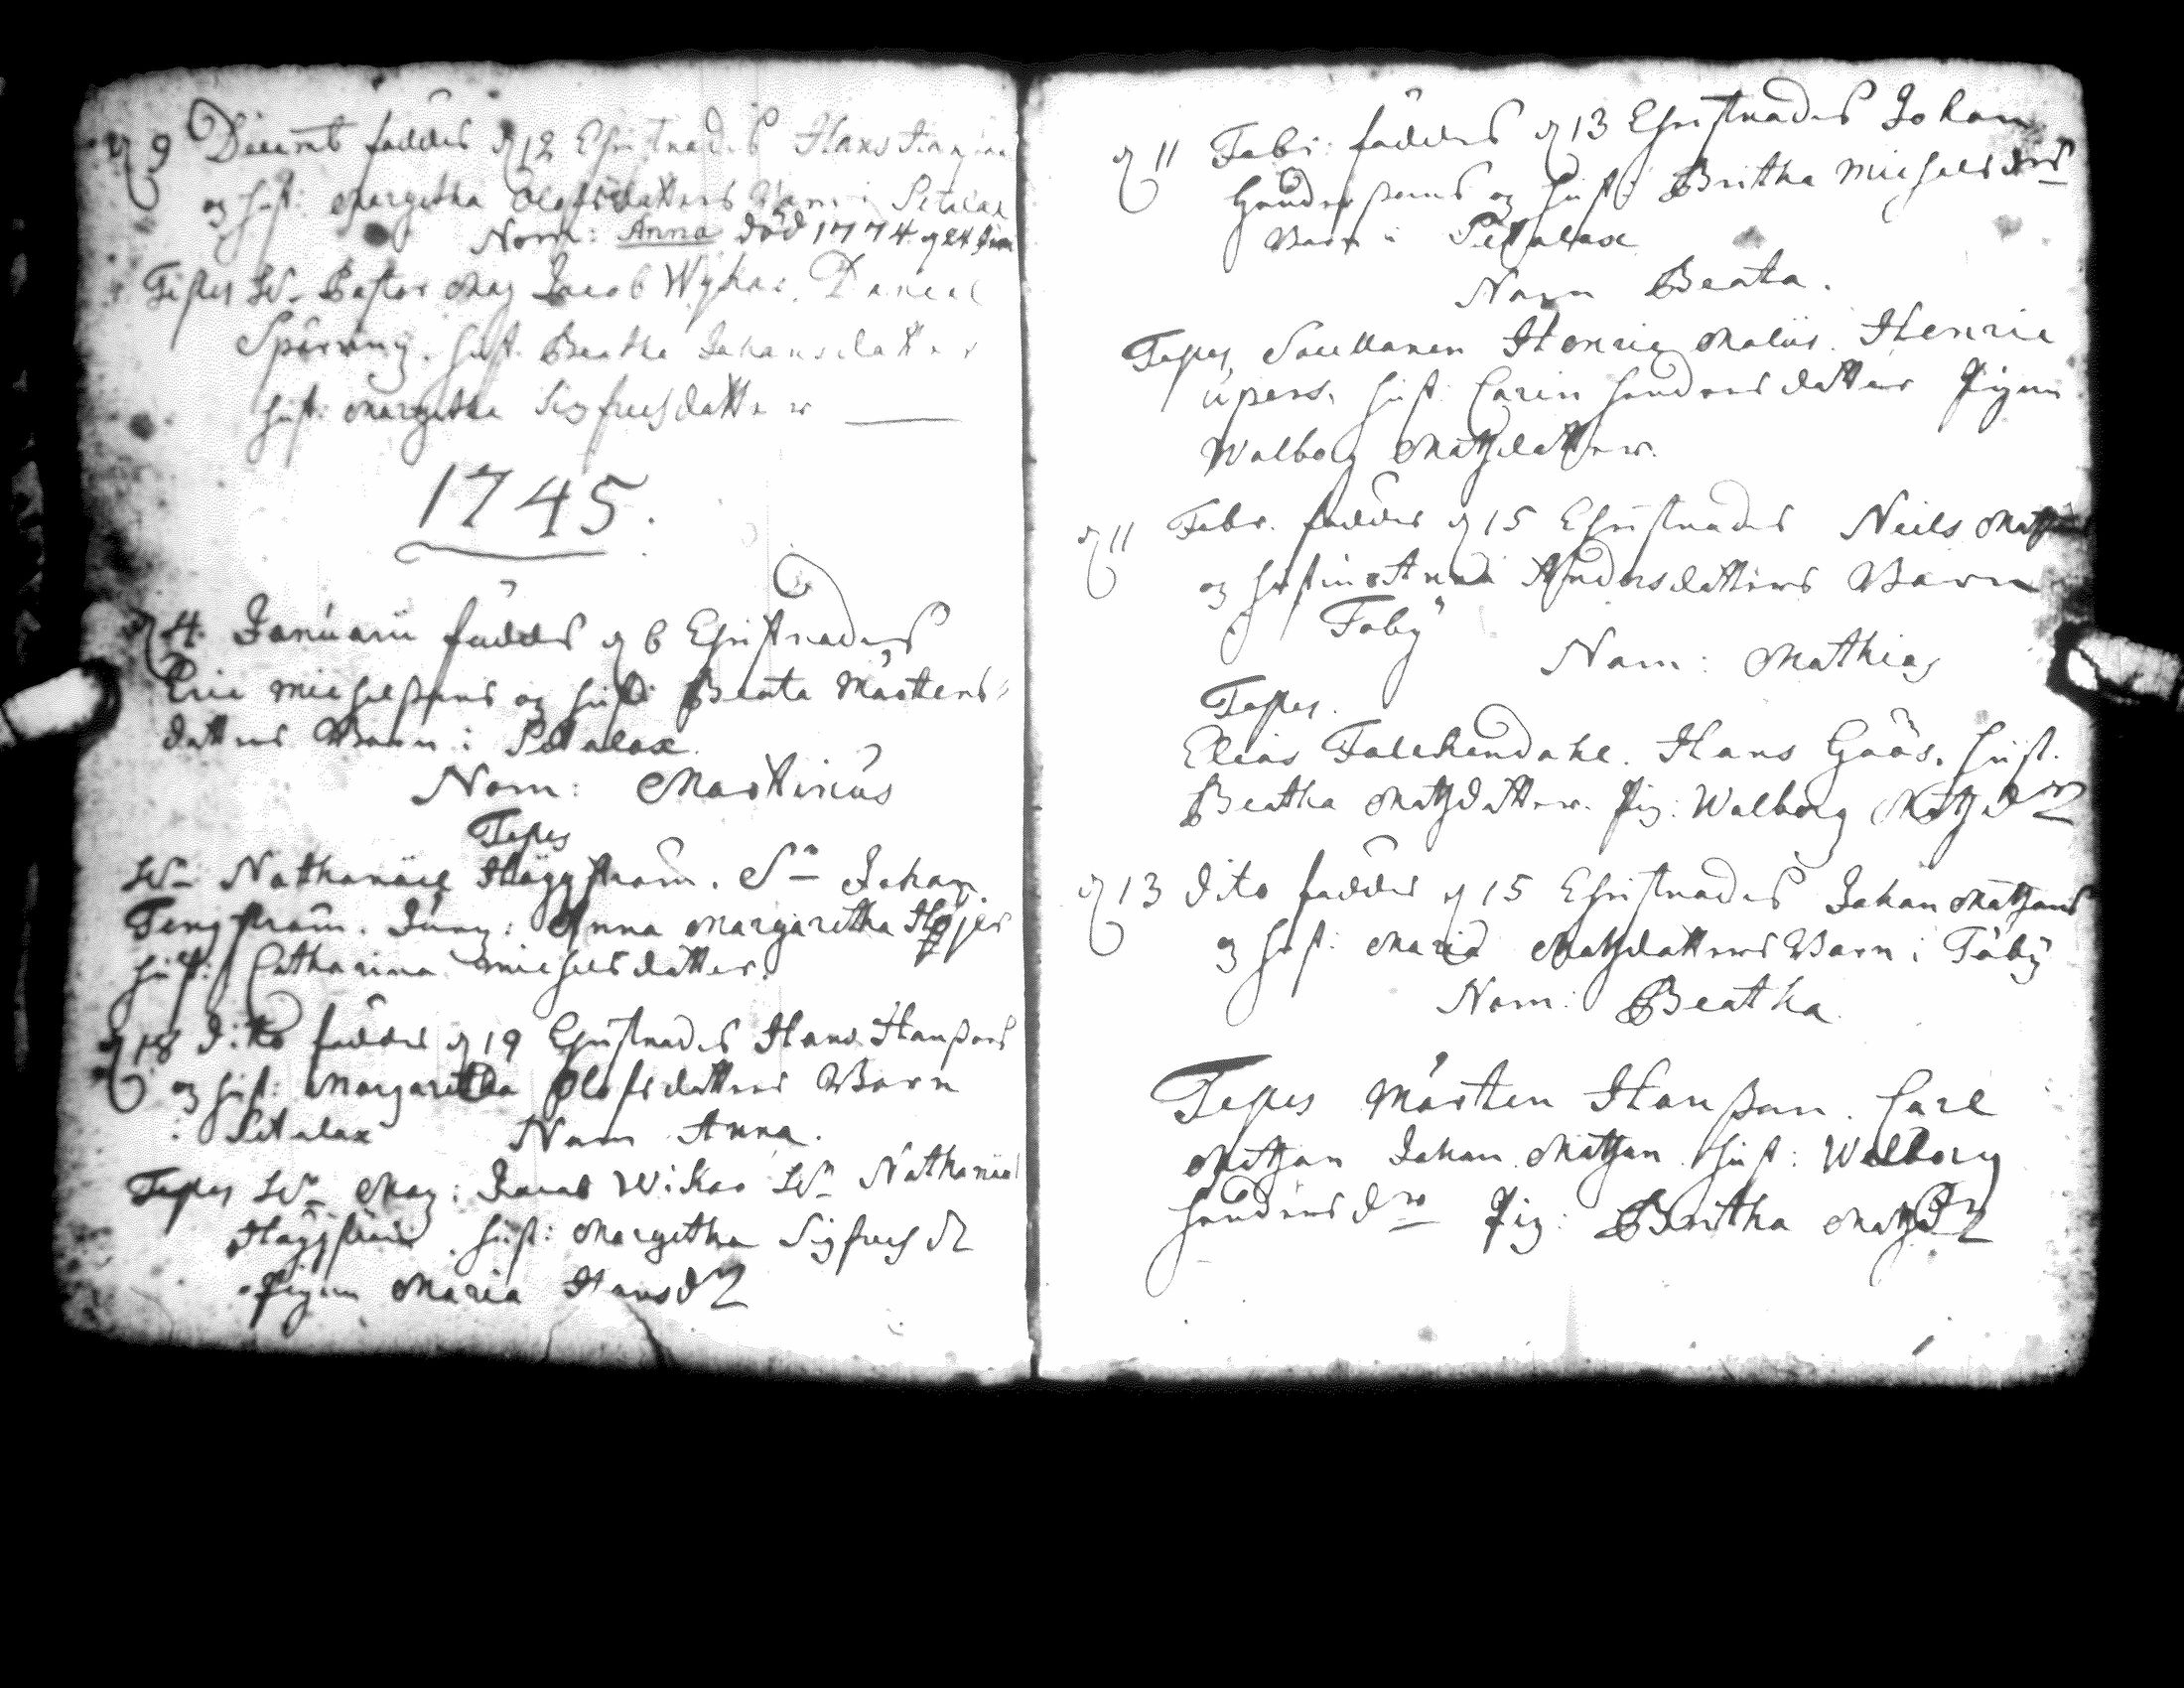 d 9 Decemb föddes d 12 Christnades Hans
og hust: Margetha Olofsdotters Barn i Petalax
Nom: Anna död 1774 d 24
Testes Hr Pastor Mag Jacob Wykar. Daniel
Sperring. hust. Beatha Johansdotter
hust: Margetha Sigfredsdotter
1745.
d 4. Januarii föddes d 6 Christnades
Eric Michelssons og hust: Beata Mårtens-
dotters Barn i Petalax.
Nom: Martinus
Testes
Hr Nathanäel Häggström. Sr Johan
Tengström. Jung: Anna Margaretha Höjer
hust: Catharina Michelsdotter.
d 18 Dito föddes d 19 Christnades Hans Hanssons
og hust: Margaretha Olofsdotters Barn
i Petalax Nom Anna.
Testes Hr Mag: Jacob Wikar Hr Nathanael
Häggström. hust: Margetha Sigfredsdr
Pigan Maria Hansdr
d 11 Febr: föddes d 13 Christnades Johan
Hendrssons og hust: Britha Michelsdrs
Barn i Petalax
Nom Beata.
Testes, Henric Malus. Henric
Upers, hust: Carin Hendersdotter Pigan
Walborg Matzdotter.
d 11 Febr. föddes d 15 Christnades Niels Matz
og hustrus Anna Andersdotters Barn
Töby Nom: Mathias
Testes.
Elias Falckendahl. Hans Gåås. hust.
Beatha Matzdotter. Pig: Walborg Matzdr
d 13 Dito föddes d 15 Christnades Johan Matzons
og hust: Maria Matzdotters Barn i Töby
Nom: Beatha
Testes Mårten Hansson. Carl
Matzon Johan Matzon hust: Walborg
Hendersdr Pig: Britha Matzdr